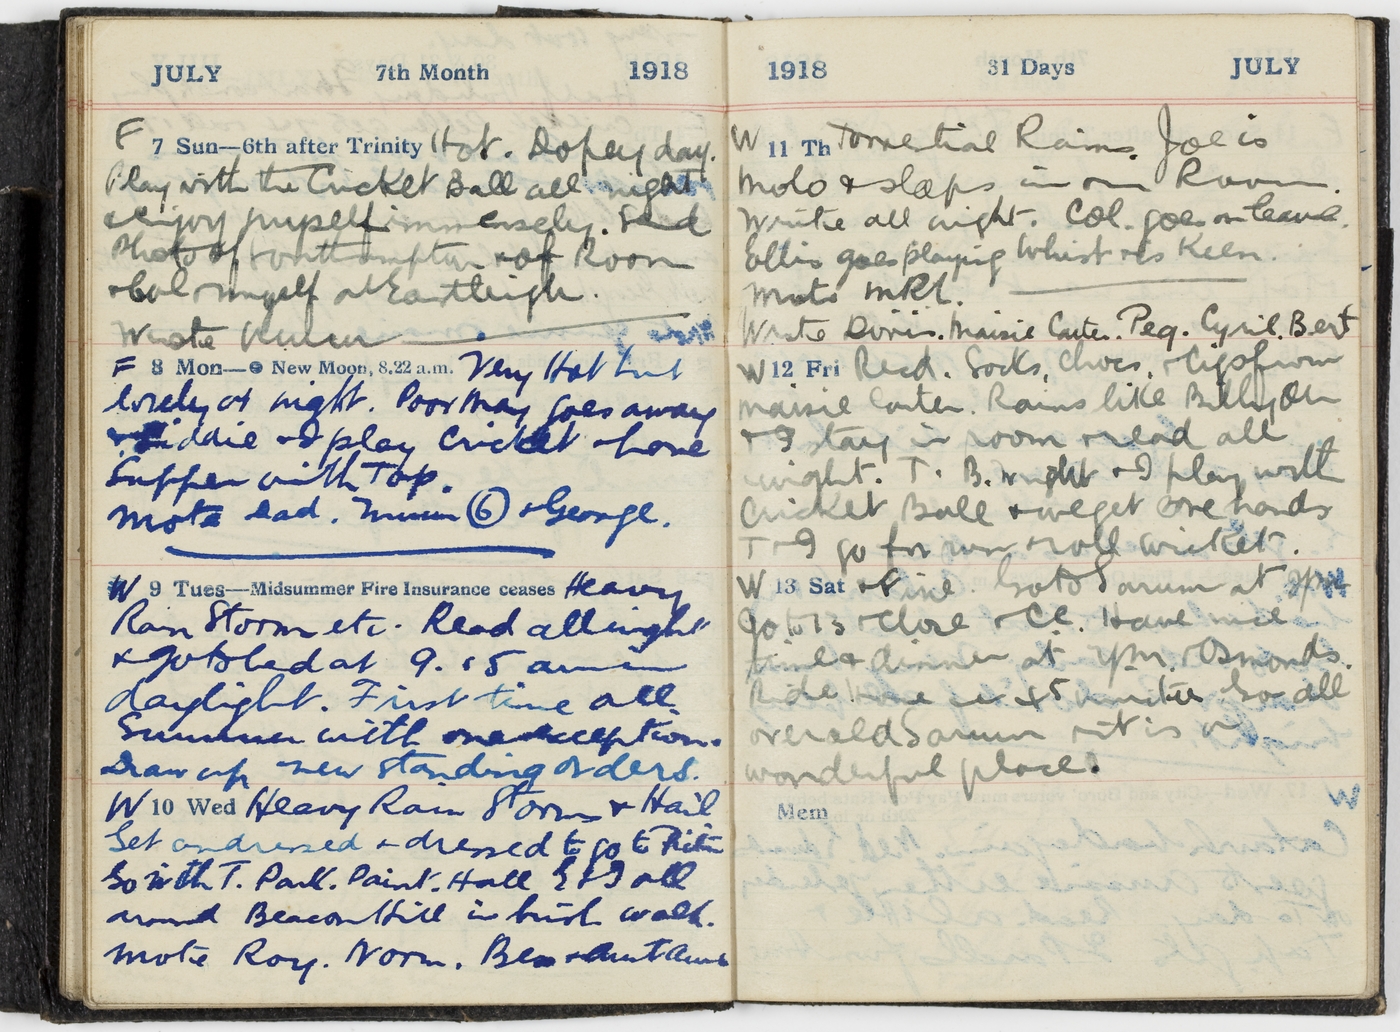 JULY 7th Month 1918
F 7 Sun—6th after Trinity Hot. Dopey day.
Play with the Cricket Ball all night
& enjoy myself immensely. Send
Photo of Southampton & of Room
& Col & myself at Eastleigh.
Wrote
F 8 Mon— New Moon, 8.22 a.m. Very Hot but
lovely at night. Poor May goes away
& I play Cricket & have
Supper with Top.
Mote Ead. Mum 6 & George.
W 9 Tues—Midsummer Fire Insurance ceases Heavy
Rain Storm etc. Read all night
& go to bed at 9.15 am in
daylight. First time all
Summer with one exception.
Draw up new standing orders.
W 10 Wed Heavy Rain Storm & Hail
Get undressed & dressed to go to
Go with T. Park. Paint. Hall E & I all
around Beacon Hill in brisk walk.
Mote Roy. Norm. Bea & Aunt
1918 31 Days JULY
W 11 Th Torrential Rains. Joe is
Molo & sleeps in our Room.
Write all night. Col. goes on leave.
Ellis goes playing Whist & is Keen.
Mote MRL.
Wrote Doris. Maisie Carter. Peg. Cyril. Bert
W 12 Fri Recd. Socks, Chocs, & Cigs from
Maisie Carter. Rains like Billy Oh
& I stay in room & read all
night. T. B. Wright & I play with
Cricket Ball & we get sore hands
T & I go for run & roll wicket.
W 13 Sat Fine. Go to Sarum at 2pm
Go to & Close & Ce. Have nice
time & dinner at 7pm. Osmonds.
Ride home in 45 minutes Go all
over old Sarum & it is a
wonderful place.
Mem
W